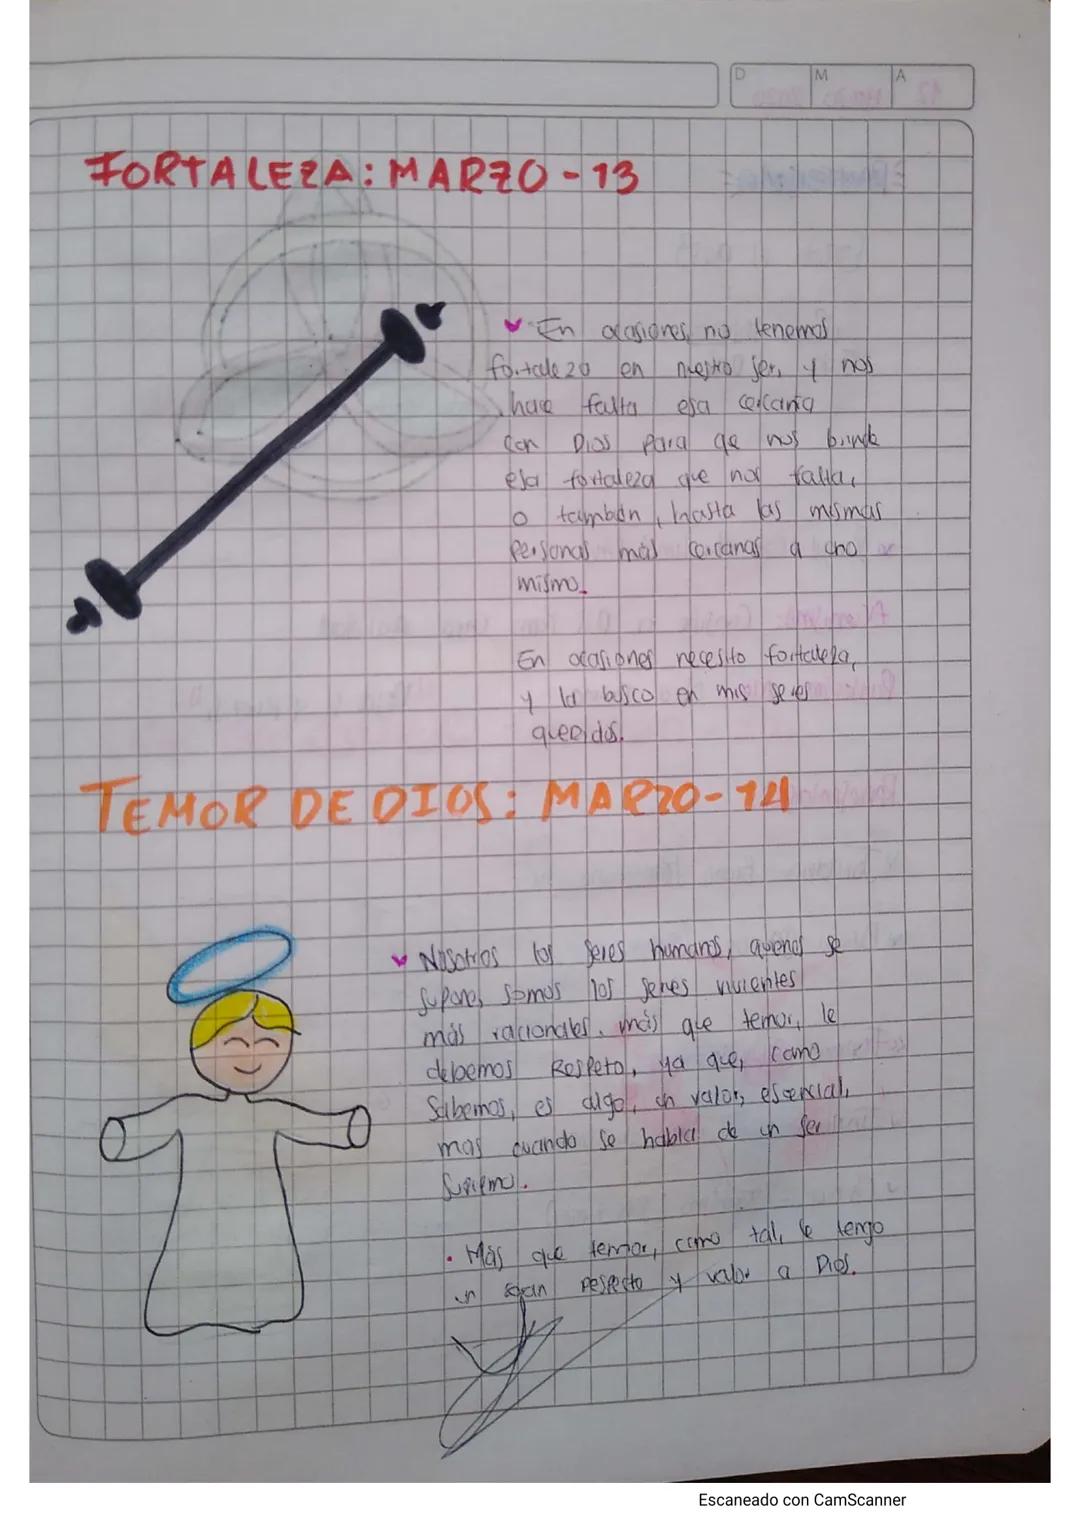 D M A
FORTALEZA: MARZO - 13
En ocasiones, no tenemos
fortaleza en nuestro ser, y nos
hace falta esa cercania
con Dios para qe nos brinde
esa fortaleza que nos falta,
o también, hasta las mismas
personas más cercanas a uno
mismo.
En ocasiones necesito fortaleza,
y la busco en mis seres
queridos.
TEMOR DE DIOS: MARZO - 14
Nosotros los seres humanos, quienes se
supone, somos los seres vivientes
más racionales, más que temor, le
debemos Respeto, ya que, como
Sabemos, es algo, un valor, esencial,
mas cuando se habla de un ser
Supremo.
. Más que temor, como tal, le tengo
un gran respeto y valor a Dios.
Escaneado con CamScanner